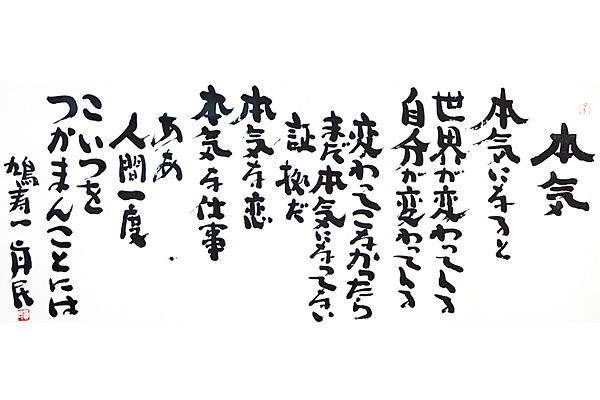 本気
本気になると
世界が変わってくる
自分が変わってくる
変わってこなかったら
まだ本気になってない
証拠だ
本気な恋
本気な仕事
ああ
人間一度
こいつを
つかまんことには
鳩寿一 真民